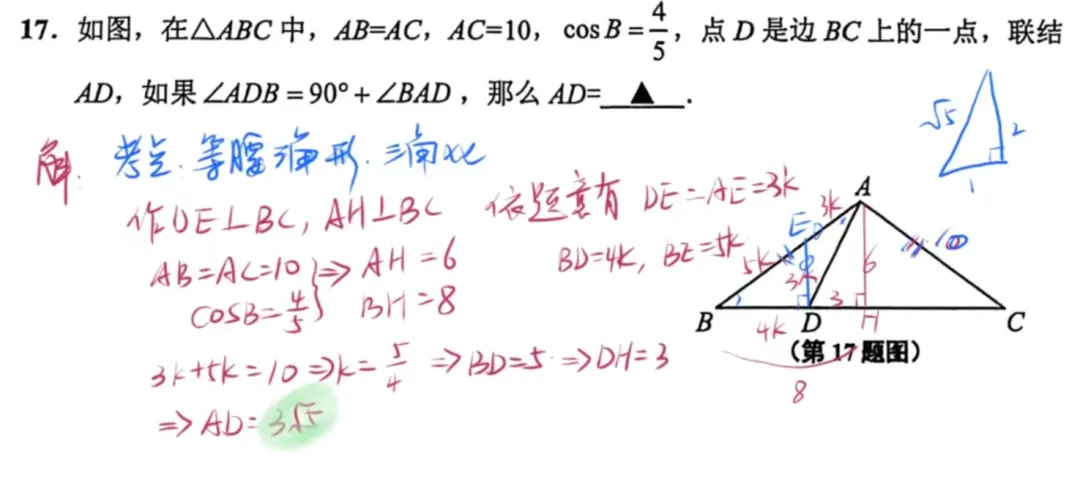 17. 如图，在△ABC 中，AB=AC，AC=10，cos B = 4/5，点 D 是边 BC 上的一点，联结
AD，如果 ∠ADB = 90° + ∠BAD，那么 AD= ▲ .
解. 考点. 等腰三角形. 三角比
作DE⊥BC, AH⊥BC 依题意有 DE=AE=3k
AB=AC=10 } ⇒ AH=6 BD=4k, BE=5k
COSB=4/5 } BH=8
3k+5k=10 ⇒ k=5/4 ⇒ BD=5 ⇒ DH=3
⇒ AD=3√5
√5 2
1
A
3k
E
5k 10
3k 6
3
B D H C
4k
(第 17 题图)
8